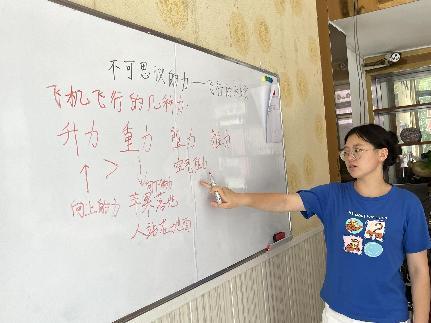 不可思议的力——飞行的
飞机飞行的几种力
升力 > 重力 推力 阻力
空气
向上的力 向下的力
苹果落地
人站在地面